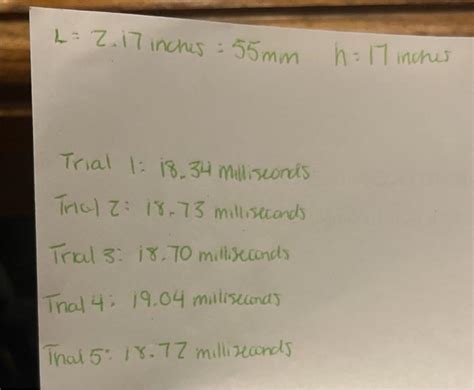 L = 2.17 inches = 55mm h = 17 inches
Trial 1: 18.34 milliseconds
Trial 2: 18.73 milliseconds
Trial 3: 18.70 milliseconds
Trial 4: 19.04 milliseconds
Trial 5: 18.72 milliseconds